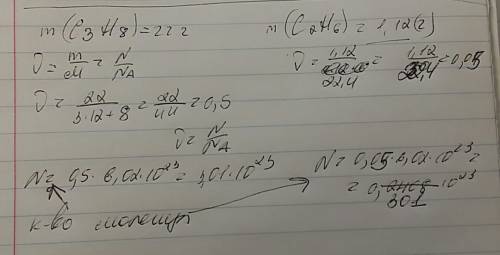 m(C3H8)=22г
ν=m/M=N/NA
ν=22/3·12+8=22/44=0,5
ν=N/NA
N=0,5·6,02·10^23=3,01·10^23
к-во молекул
m(C2H6)=1,12(г)
ν=1,12/22,4=1,12/22,4=0,05
N=0,05·6,02·10^23=
=0,301·10^23